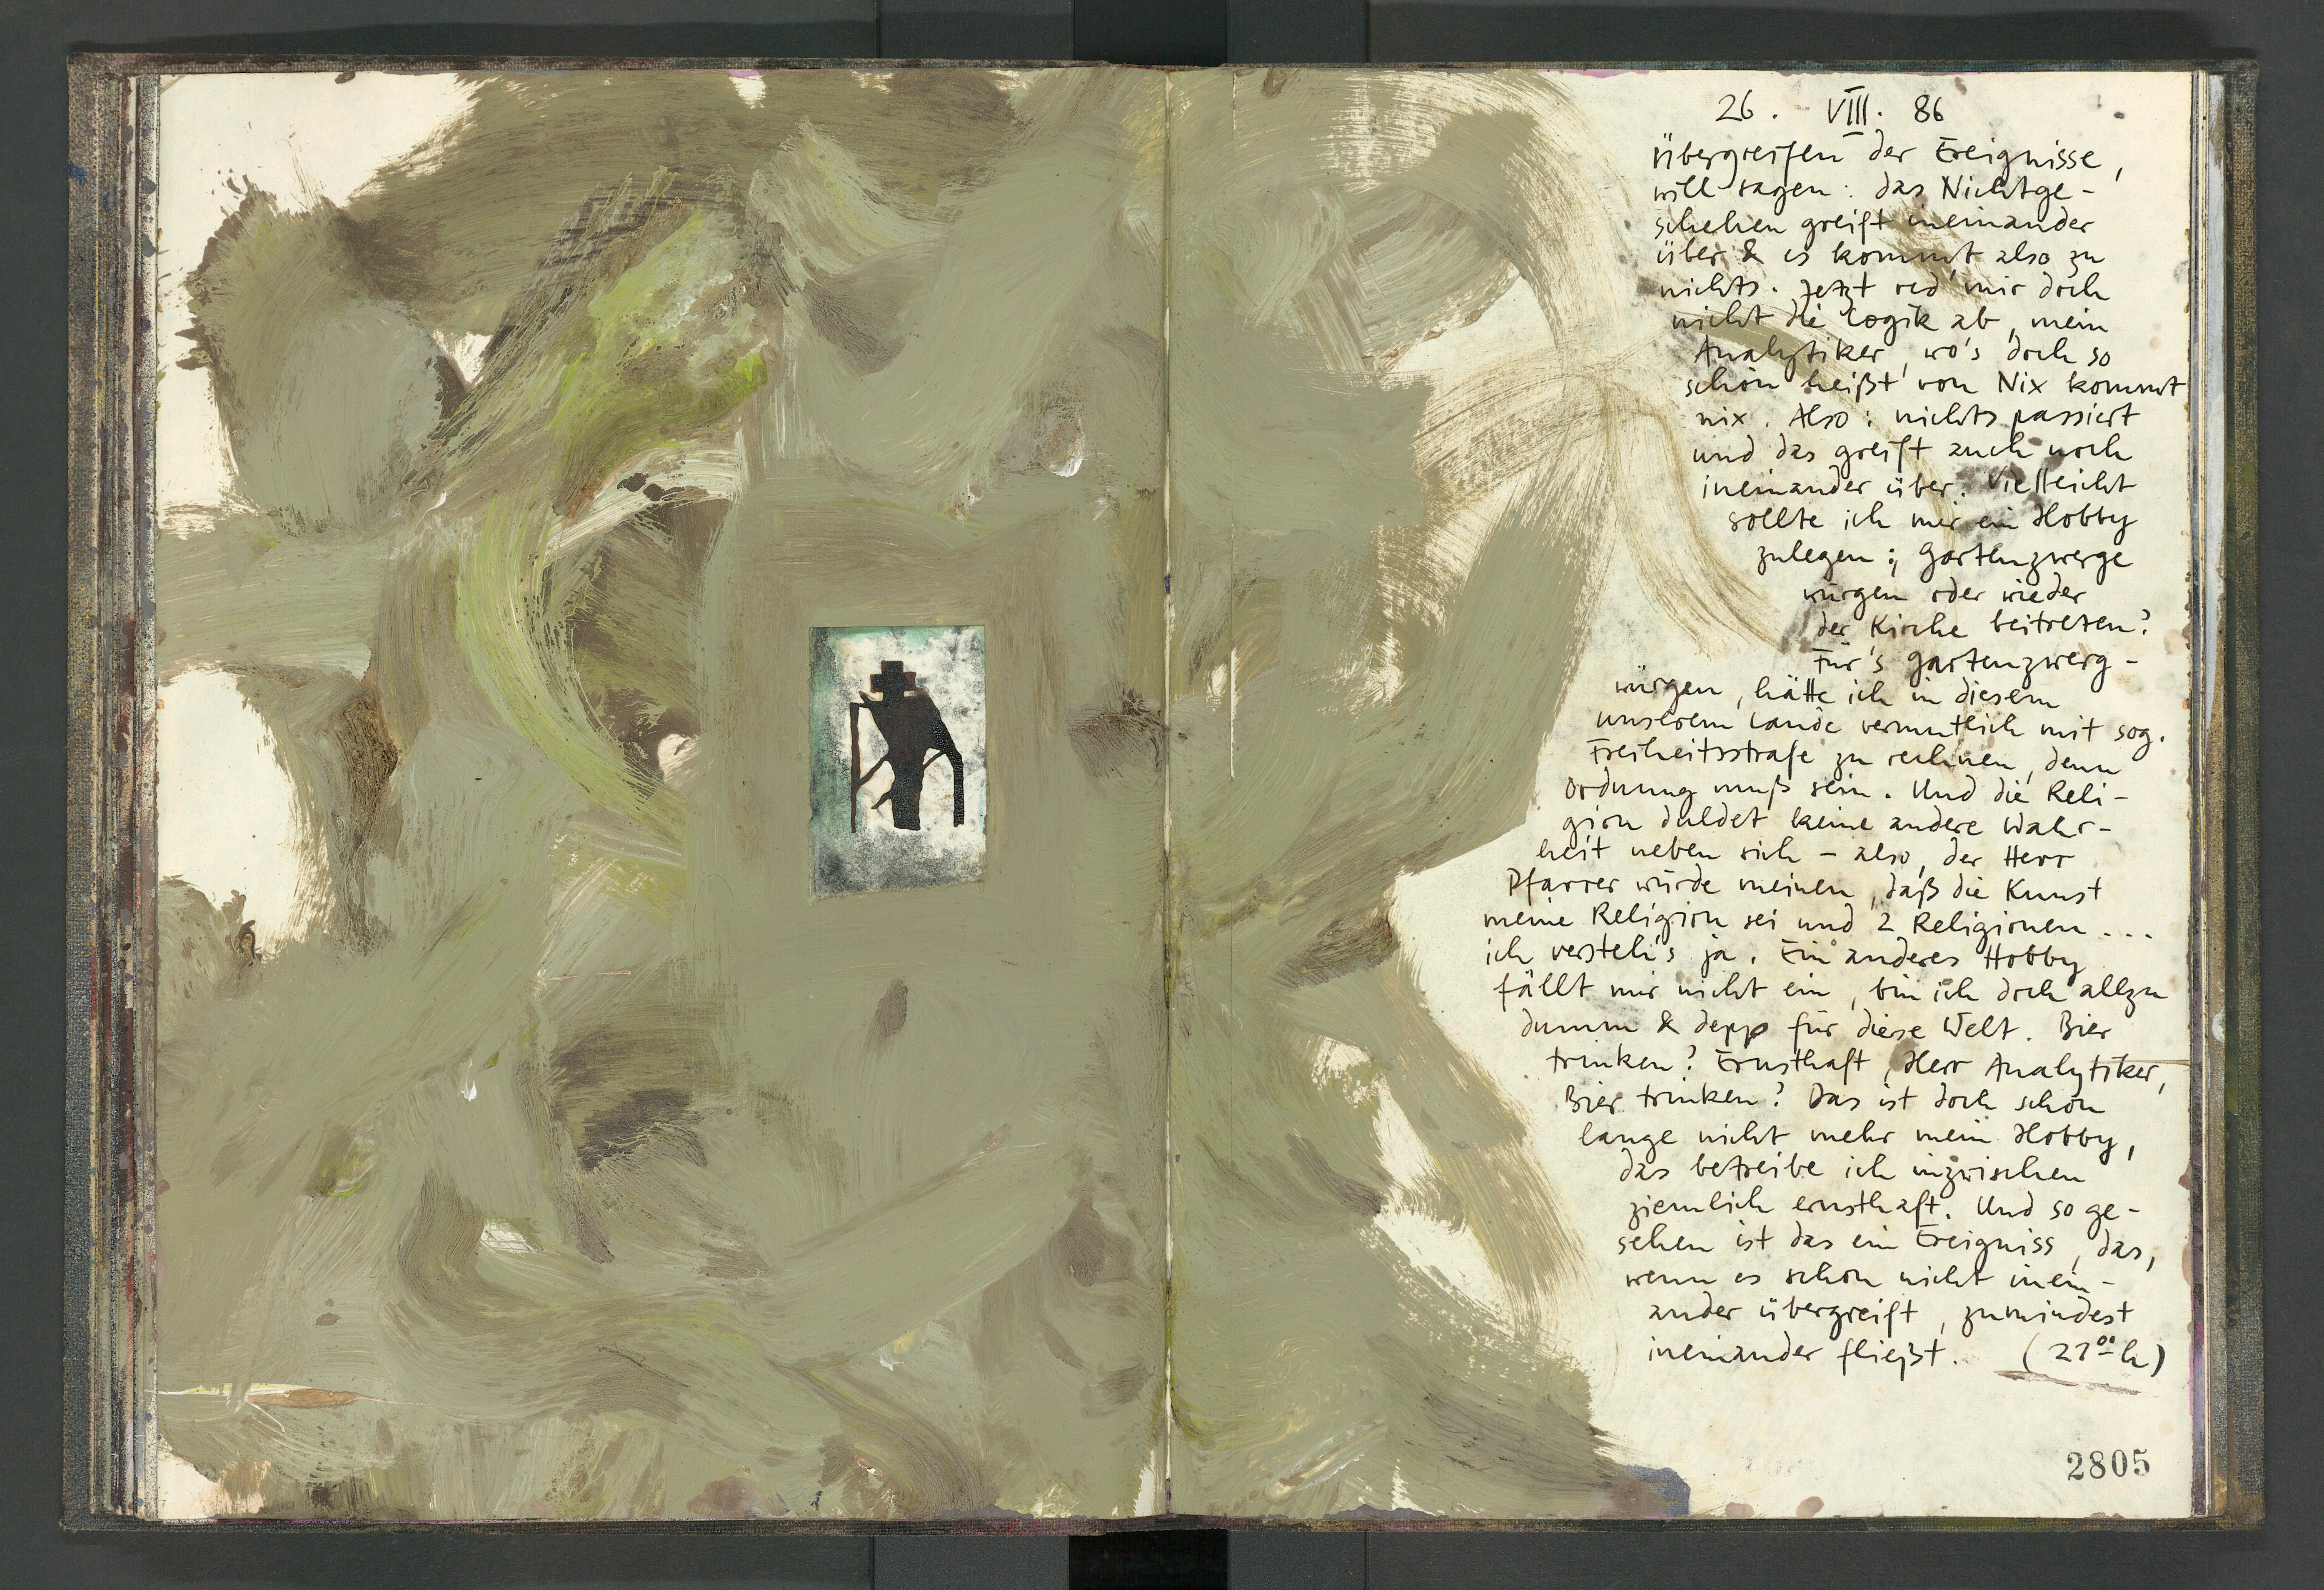 26. VIII. 86
Übergreifen der Ereignisse,
will sagen: das Nichtge-
schehen greift ineinander
über & es kommt also zu
nichts. Jetzt red' mir doch
nicht die Logik ab, mein
Analytiker, wo's doch so
schön heißt von Nix kommt
nix. Also: nichts passiert
und das greift auch noch
ineinander über. Vielleicht
sollte ich mir ein Hobby
zulegen; Gartenzwerge
würgen oder wieder
der Kirche beitreten?
Für's Gartenzwerg-
würgen, hätte ich in diesem
unserem Lande vermutlich mit sog.
Freiheitsstrafe zu rechnen, denn
Ordnung muß sein. Und die Reli-
gion duldet keine andere Wahr-
heit neben sich – also, der Herr
Pfarrer würde meinen, daß die Kunst
meine Religion sei und 2 Religionen...
ich versteh's ja. Ein anderes Hobby
fällt mir nicht ein, bin ich doch allzu
dumm & depp für diese Welt. Bier
trinken? Ernsthaft, Herr Analytiker,
Bier trinken? Das ist doch schon
lange nicht mehr mein Hobby,
das betreibe ich inzwischen
ziemlich ernsthaft. Und so ge-
sehen ist das ein Ereigniss, das,
wenn es schon nicht inein-
ander übergreift, zumindest
ineinander fließt. (21⁰⁰ h)
2805